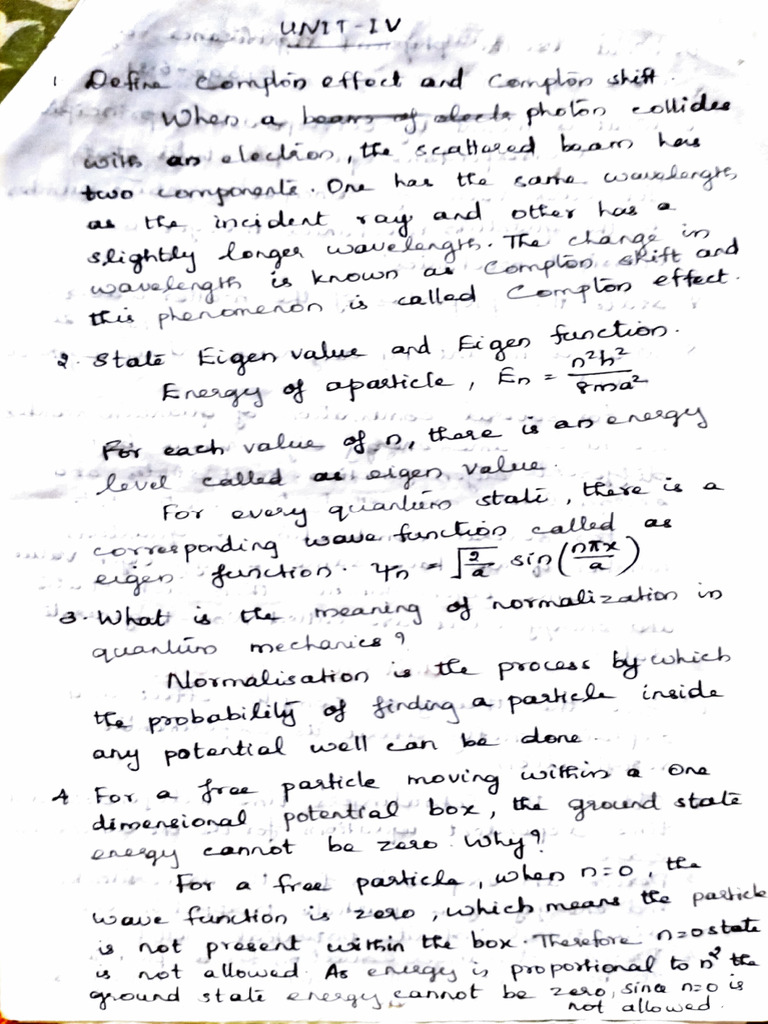 UNIT-IV
1 Define Compton effect and Compton shift.
When a beam of electr photon collides
with an electron, the scattered beam has
two components. One has the same wavelength
as the incident ray and other has a
slightly longer wavelength. The change in
wavelength is known as Compton shift and
this phenomenon is called Compton effect.
2. State Eigen value and Eigen function.
Energy of aparticle, En = n²h²/8ma²
For each value of n, there is an energy
level called as eigen value.
For every quantum state, there is a
corresponding wave function called as
eigen function. Ψn = √(2/a) sin(nπx/a)
3. What is the meaning of normalization in
quantum mechanics?
Normalisation is the process by which
the probability of finding a particle inside
any potential well can be done.
4 For a free particle moving within a one
dimensional potential box, the ground state
energy cannot be zero. Why?
For a free particle, when n=0, the
wave function is zero, which means the particle
is not present within the box. Therefore n=0 state
is not allowed. As energy is proportional to n² the
ground state energy cannot be zero, since n=0 is
not allowed.